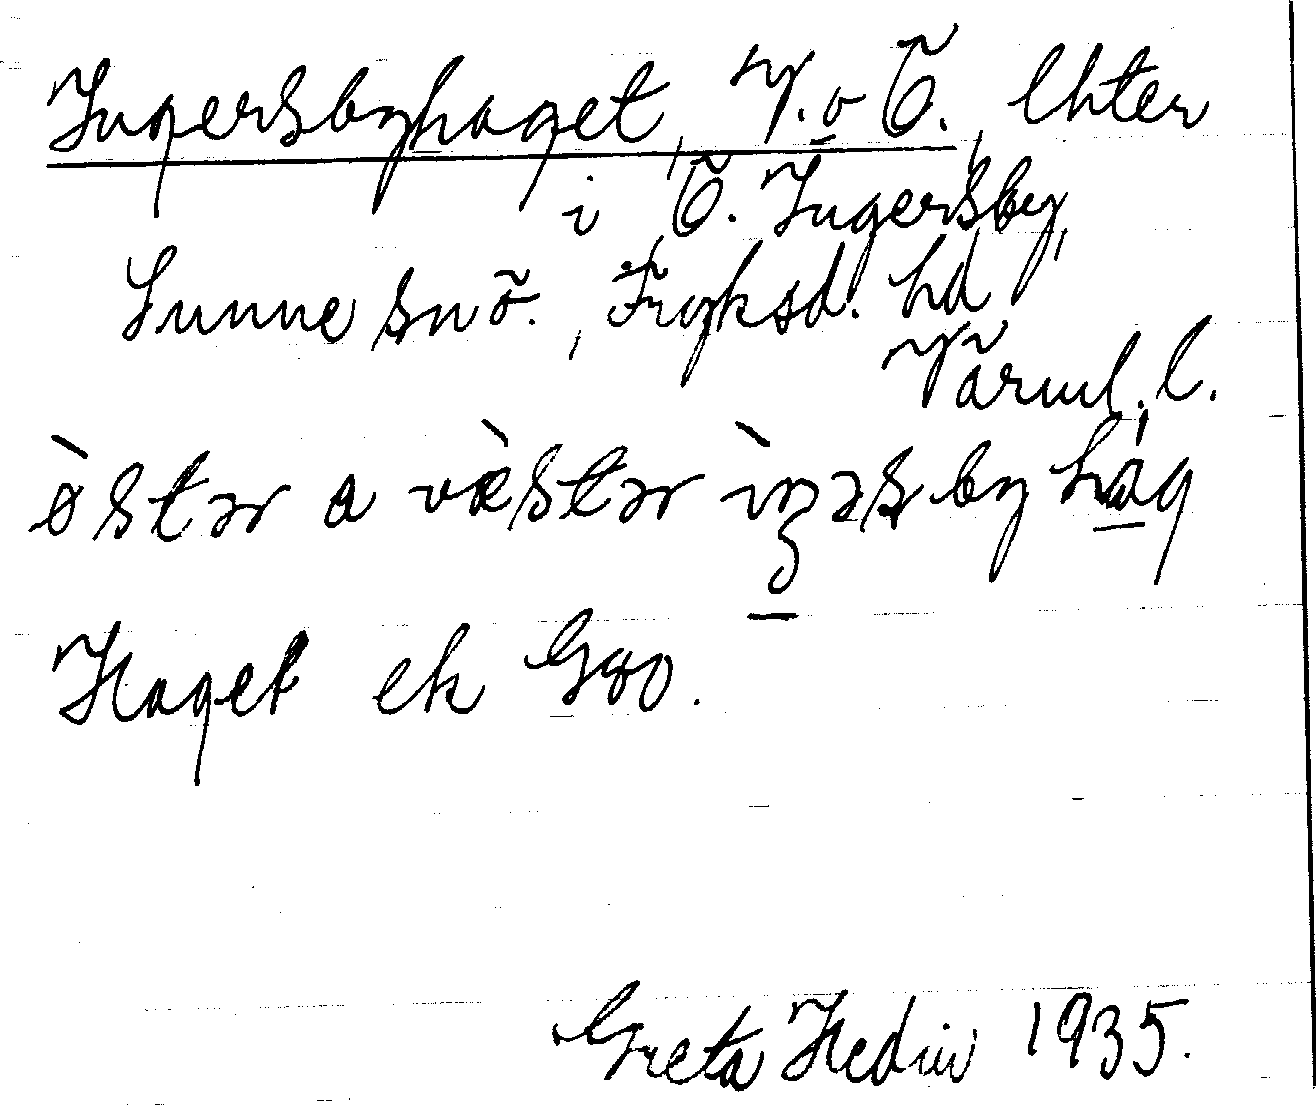 Ingersbyhaget, V. o Ö., Ähter
i Ö. Ingersby,
Sunne snö., Fryksd. hd,
Värml. l.
ὸstər a væ̀stər ìŋəsby hág
Haget ek Gso.
Greta Hedin 1935.